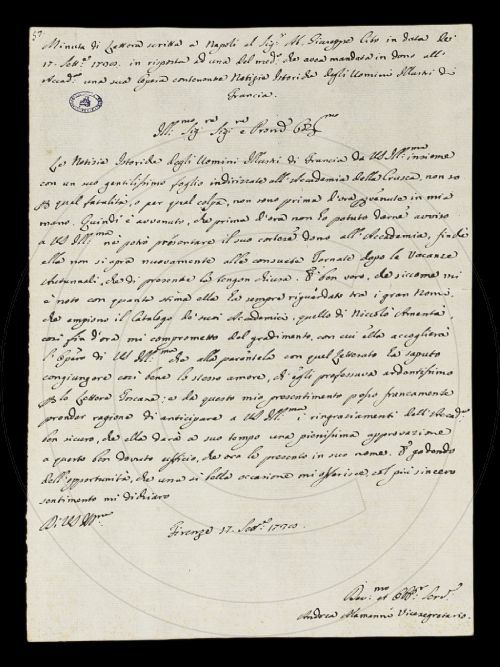 57.
Minuta di Lettera scritta a Napoli al Sig.r Ab. Giuseppe Cito in data dei
17. Sett.e 1770. in risposta ad una del med.o che avea mandata in dono all'
Accad.a una sua Opera contenente Notizie Istoriche degli Uomini Illustri di
Francia.
Ill.mo Sig.re Sig.re e Pron
Le Notizie Istoriche degli Uomini Illustri di Francia da VS Ill.ma insieme
con un suo gentilissimo foglio indirizzate all'Accademia della Crusca, non so
p qual fatalità, o per qual colpa, non sono prima d'ora pervenute in mia
mano. Quindi è avvenuto, che prima d'ora non ho potuto darne avviso
a VS Ill.ma nè potrò presentare il suo cortese dono all'Accademia, finchè
ella non si apra nuovamente alle consuete Tornate dopo le Vacanze
Autunnali, che di presente la tengon chiusa. È ben vero, che siccome mi
è noto con quanta stima ella ha sempre riguardato tra i gran Nomi,
che empiono il Catalogo de' suoi Accademici, quello di Niccolò Amenta,
così fin d'ora mi comprometto del gradimento, con cui ella accoglierà
l'Opera di VS Ill.ma che alla parentela con quel Letterato ha saputo
congiungere così bene lo stesso amore, ch'egli professava addentissimo
p le Lettere Toscane: e da questo mio presentimento posso francamente
prender ragione di anticipare a VS Ill.ma i ringraziamenti dell'Accad.a
ben sicuro, che ella darà a suo tempo una pienissima approvazione
a questo ben dovuto ufficio, che ora le presento in suo nome. E godendo
dell'opportunità, che una sì bella occasione mi offerisce, col più sincero
sentimento mi dichiaro
Di VS Ill.ma
Firenze 17. Sett.e 1770.
Dev.mo et Obb.mo Serv.e
Andrea Alamanni Vicesegretario.